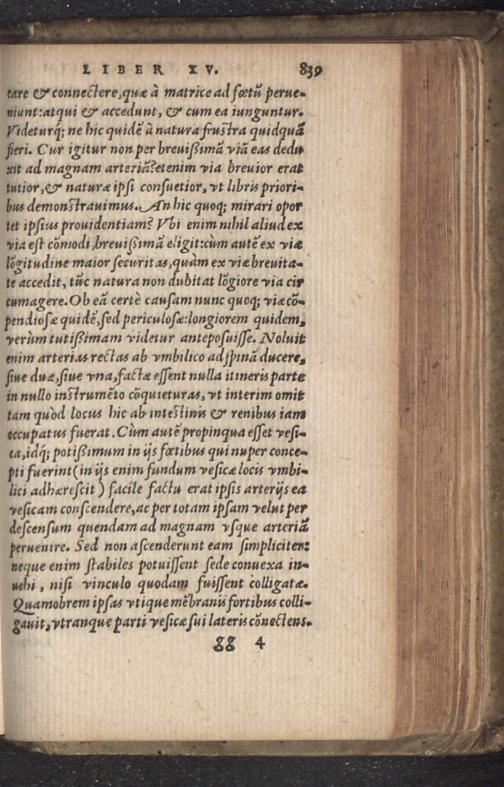 LIBER XV. 839
tare & connectere, quæ à matrice ad fœtũ perue-
niunt: atqui & accedunt, & cum ea iunguntur.
Videturq; ne hic quidẽ à natura frustra quidquã
fieri. Cur igitur non per breuißimã viã eas dedu
xit ad magnam arteriã? etenim via breuior erat
tutior, & naturæ ipsi consuetior, vt libris priori-
bus demonstrauimus. An hic quoq; mirari opor
tet ipsius prouidentiam? Vbi enim nihil aliud ex
via est cõmodi, breuißimã eligit: cùm autẽ ex viæ
lõgitudine maior securitas, quàm ex viæ breuita-
te accedit, tũc natura non dubitat lõgiore via cir
cumagere. Ob eã certè causam nunc quoq; viæ cõ-
pendiosæ quidẽ, sed periculosæ: longiorem quidem,
verùm tutißimam videtur anteposuisse. Noluit
enim arterias rectas ab vmbilico ad spinã ducere,
siue duæ, siue vna, factæ essent nulla itineris parte
in nullo instrumẽto cõquieturas, vt interim omit
tam quòd locus hic ab intestinis & renibus iam
occupatus fuerat. Cùm autẽ propinqua esset vesi-
ca, idq; potißimum in ijs fœtibus qui nuper conce-
pti fuerint (in ijs enim fundum vesicæ locis vmbi-
lici adhærescit) facile factu erat ipsis arterijs ea
vesicam conscendere, ac per totam ipsam velut per
descensum quendam ad magnam vsque arteriã
peruenire. Sed non ascenderunt eam simpliciter:
neque enim stabiles potuissent sede conuexa in-
uehi, nisi vinculo quodam fuissent colligatæ.
Quamobrem ipsas vtique mẽbranis fortibus colli-
gauit, vtranque parti vesicæ sui lateris cõnectens.
gg 4